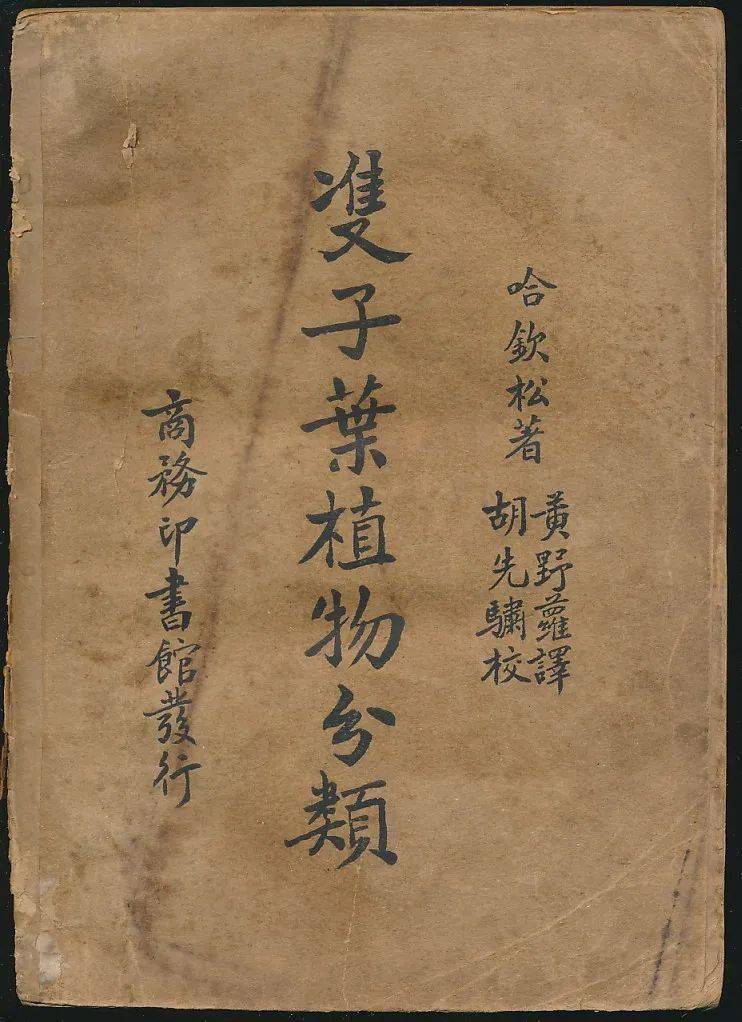 哈欽松著
黃野蘿譯
胡先驌校
雙子葉植物分類
商務印書館發行